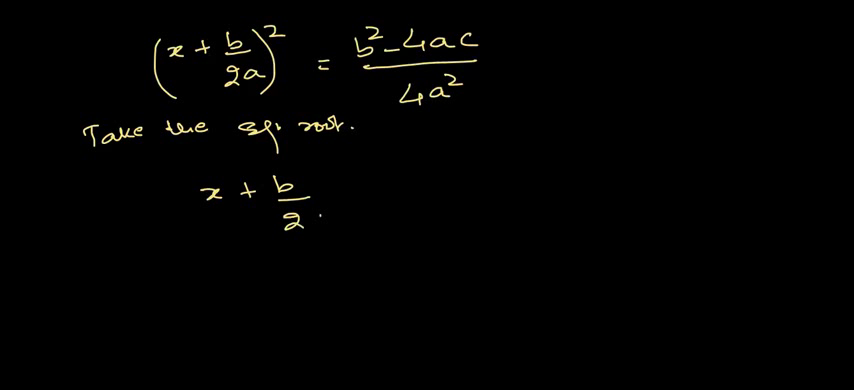 (x + b/2a)² = b² - 4ac / 4a²
Take the sq. root.
x + b/2